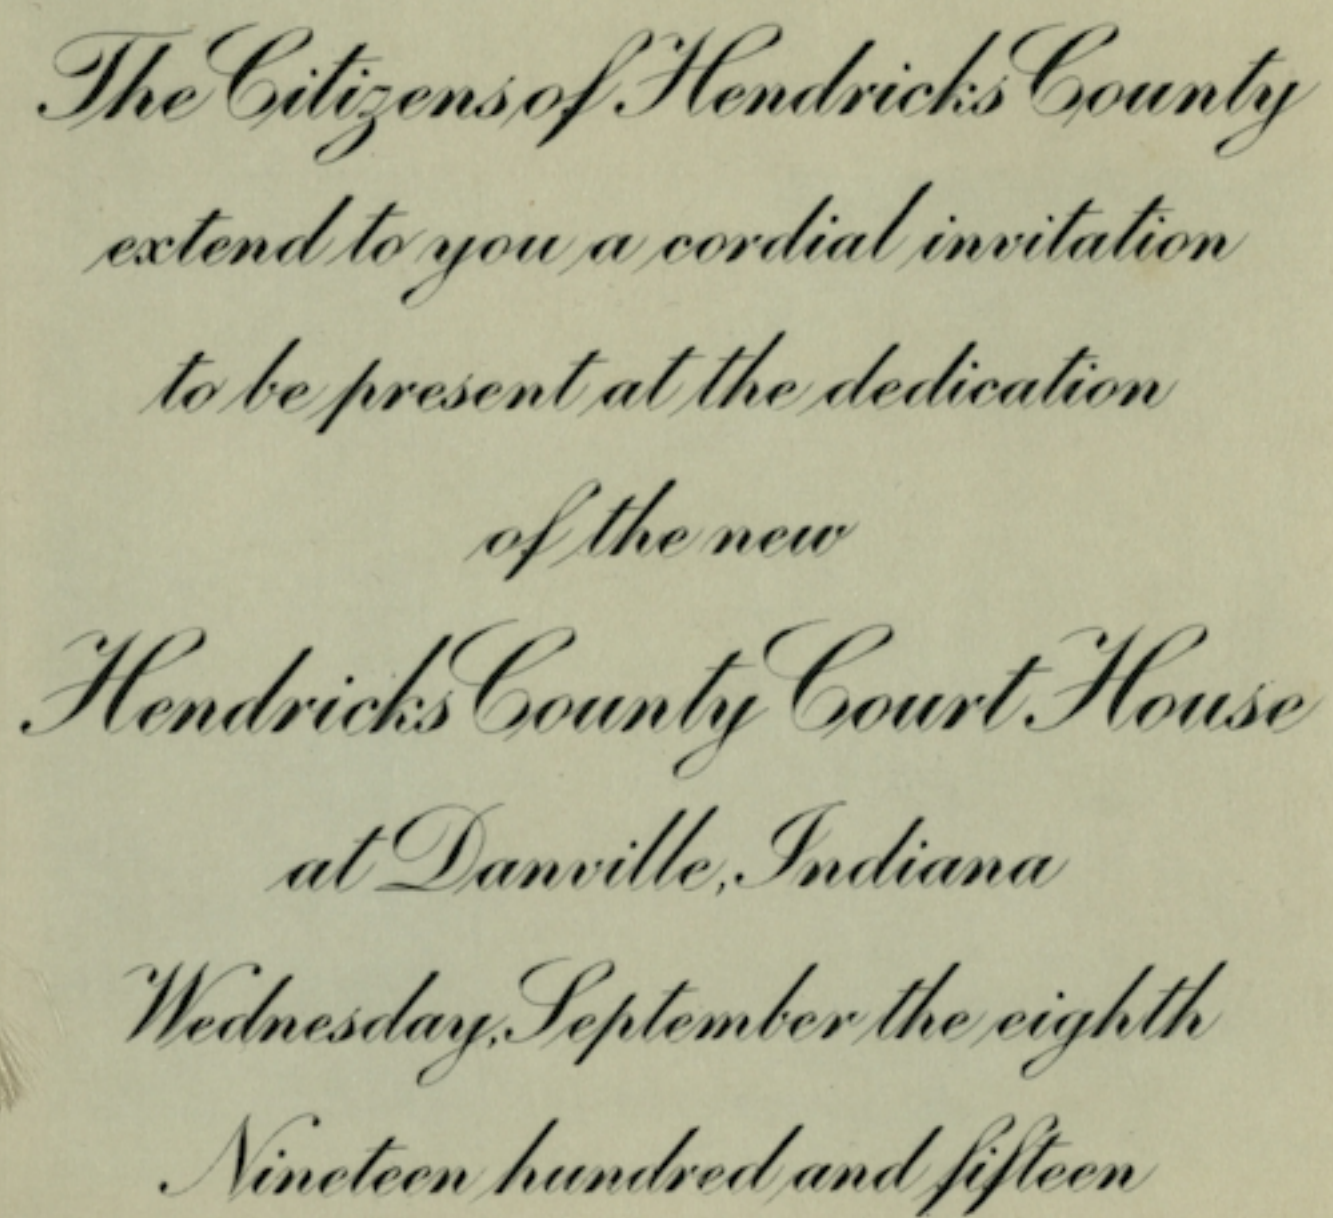 The Citizens of Hendricks County
extend to you a cordial invitation
to be present at the dedication
of the new
Hendricks County Court House
at Danville, Indiana
Wednesday, September the eighth
Nineteen hundred and fifteen